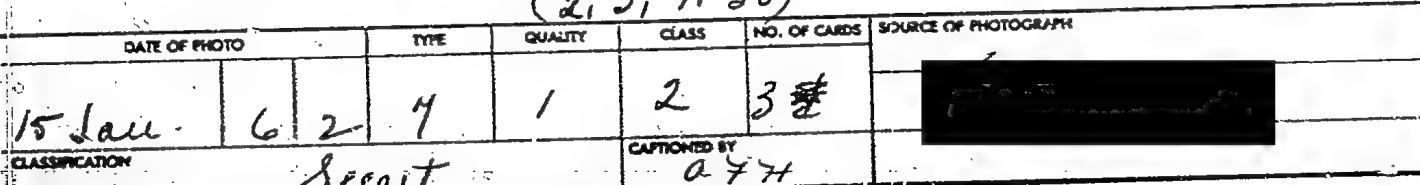 DATE OF PHOTO TYPE QUALITY CLASS NO. OF CARDS SOURCE OF PHOTOGRAPH
15 Jan. 6 2 7 1 2 3
CLASSIFICATION Secret CAPTIONED BY